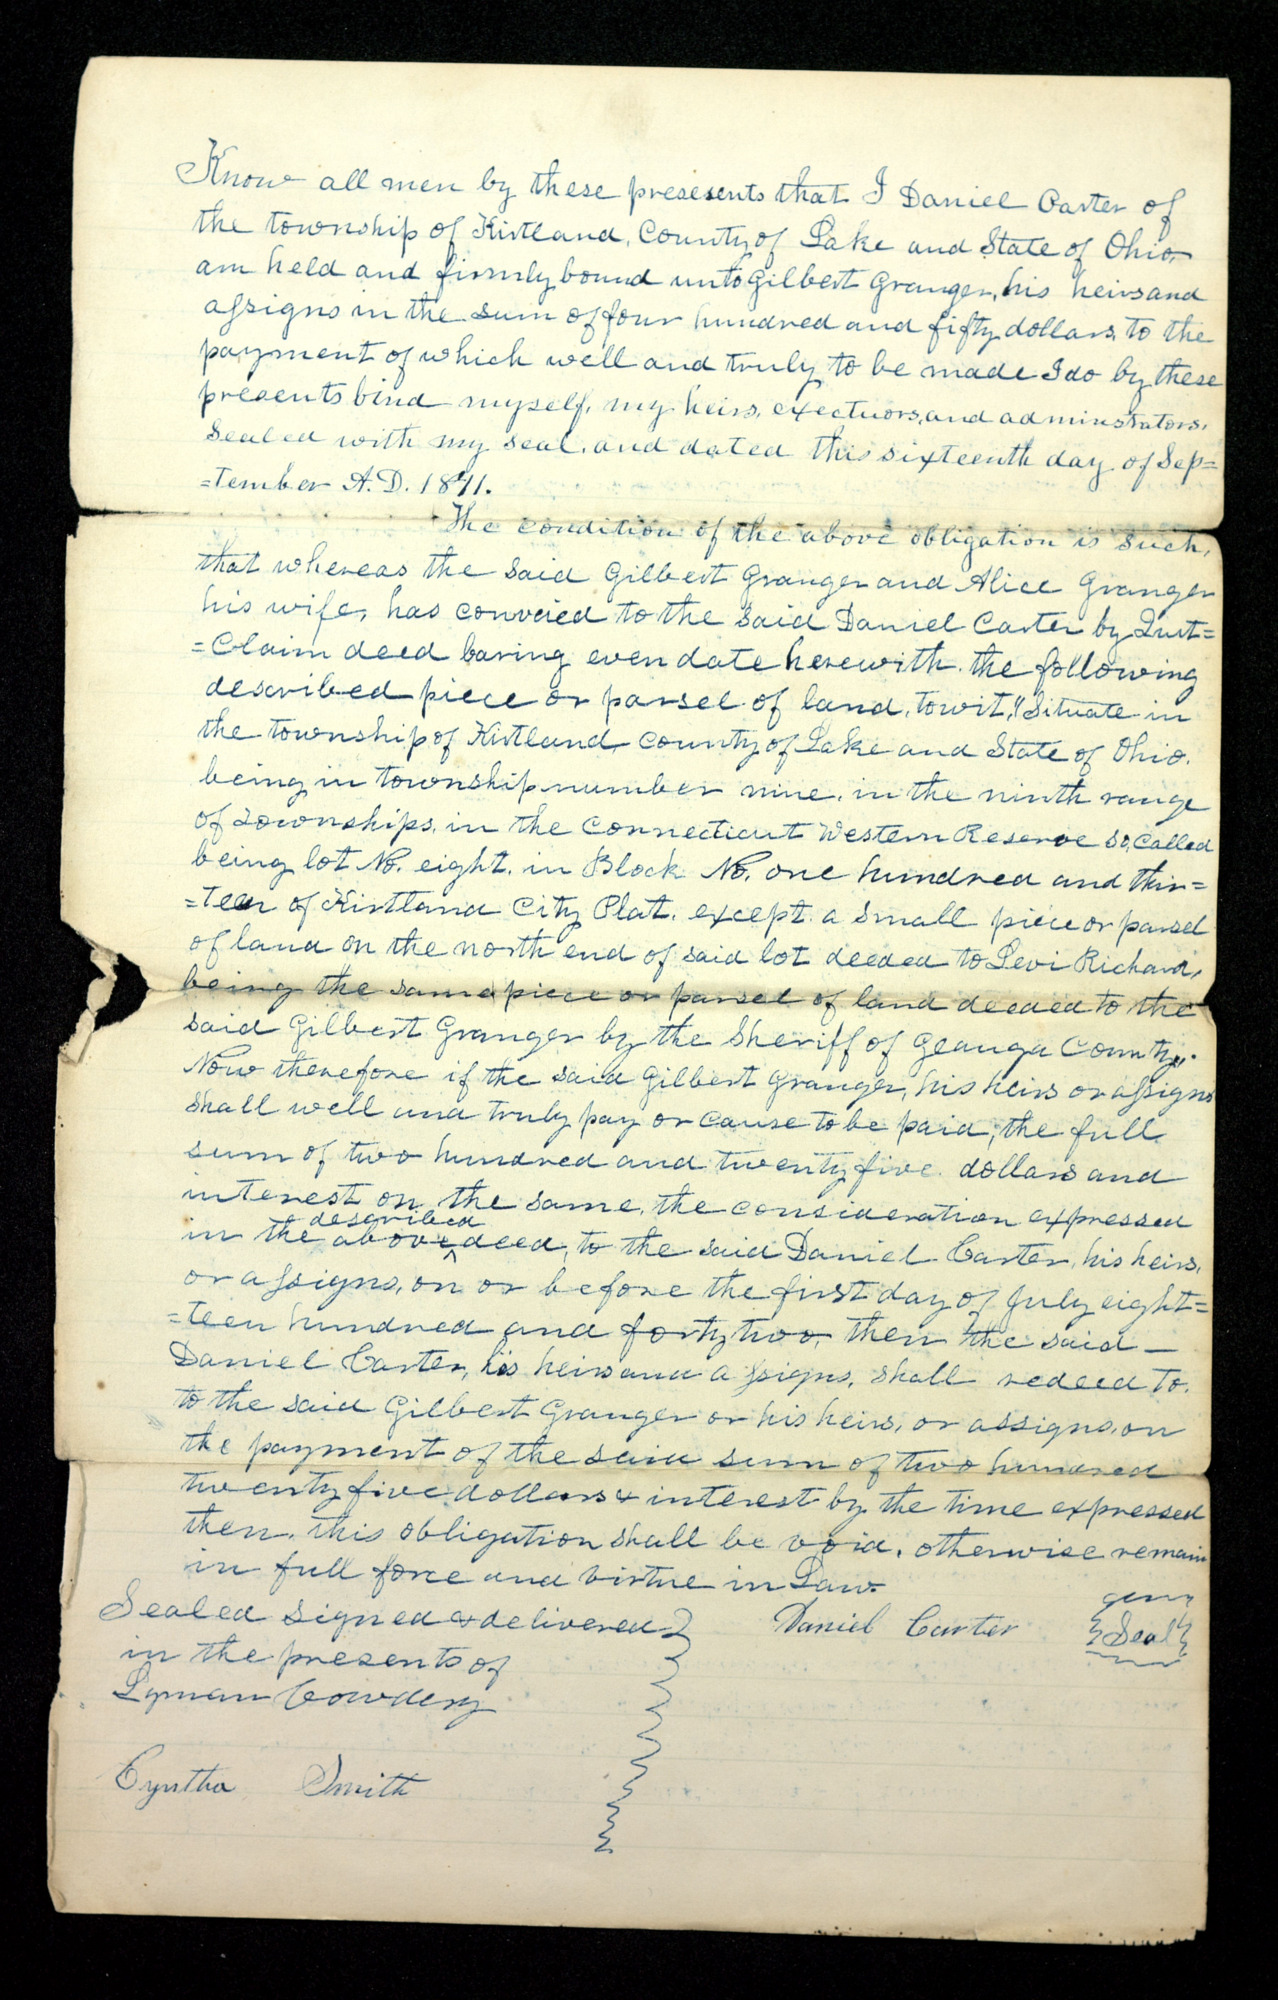 Know all men by these presesents that I Daniel Carter of
the township of Kirtland, County of Lake and State of Ohio
am held and firmly bound unto Gilbert Granger, his heirs and
assigns in the sum of four hundred and fifty dollars, to the
payment of which well and truly to be made I do by these
presents bind myself, my heirs, exectuors, and adminstrators.
Sealed with my seal, and dated this sixteenth day of Sep=
=tember A.D. 1871.
The condition of the above obligation is such,
that whereas the said Gilbert Granger and Alice Granger
his wife, has conveied to the said Daniel Carter by Quit=
=Claim deed baring even date herewith the following
described piece or parsel of land, towit, "Situate in
the township of Kirtland county of Lake and State of Ohio.
being in township number nine, in the ninth range
of Townships, in the Connecticut Western Reserve so, called
being lot No. eight, in Block No. one hundred and thir=
=teen of Kirtland City Plat, except a small piece or parsel
of land on the north end of said lot deeded to Levi Richard,
being the same piece or parsel of land deeded to the
said Gilbert Granger by the Sheriff of Geauga County".
Now therefore if the said Gilbert Granger, his heirs or assigns
shall well and truly pay or cause to be paid, the full
sum of two hundred and twenty five dollars and
interest on the same, the consideration expressed
described
in the above deed, to the said Daniel Carter, his heirs,
or assigns, on or before the first day of July eight=
=teen hundred and forty two, then the said
Daniel Carter, his heirs and assigns, shall redeed to
to the said Gilbert Granger or his heirs, or assigns, on
the payment of the said sum of two hundred
twenty five dollars & interest by the time expressed
then, this obligation shall be void, otherwise remain
in full force and virtue in Law.
Sealed signed & delivered Daniel Carter Seal
in the presents of
Lyman Cowdery
Cyntha Smith